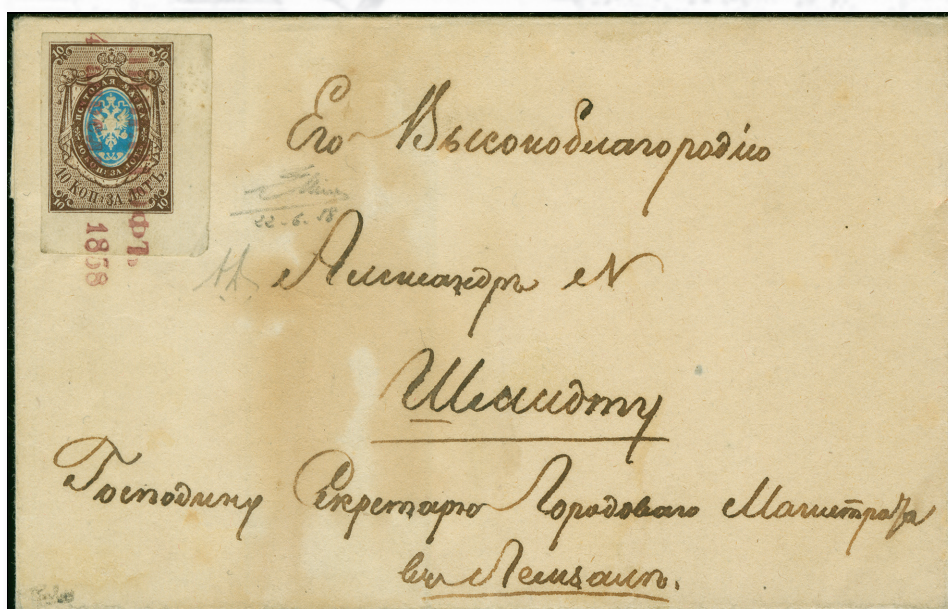 10 10
ПОЧТОВАЯ МАРКА
10 КОП. ЗА ЛОТЪ.
10 10
1858
22-6-58
Его Высокоблагородію
Александръ N
Шмидту
Господину Секретарю Городоваго Магистрата
въ Лемзалъ.